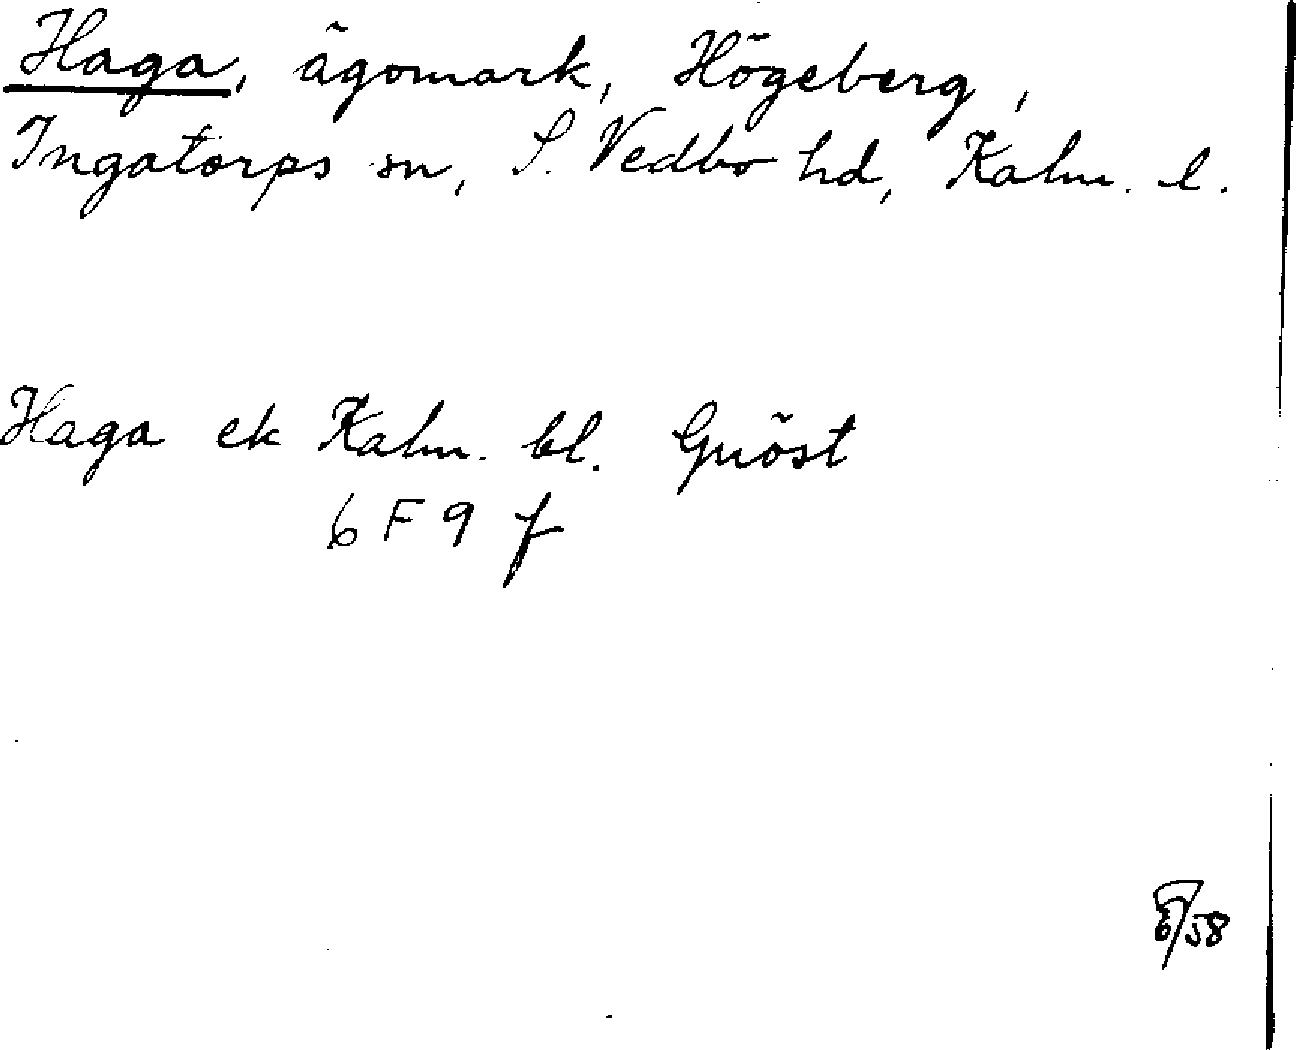 Haga, ägomark, Högeberg,
Ingatorps sn, S. Vedbo hd, Kalm. l.
Haga ek Kalm. bl. Gnöst
6 F 9 f